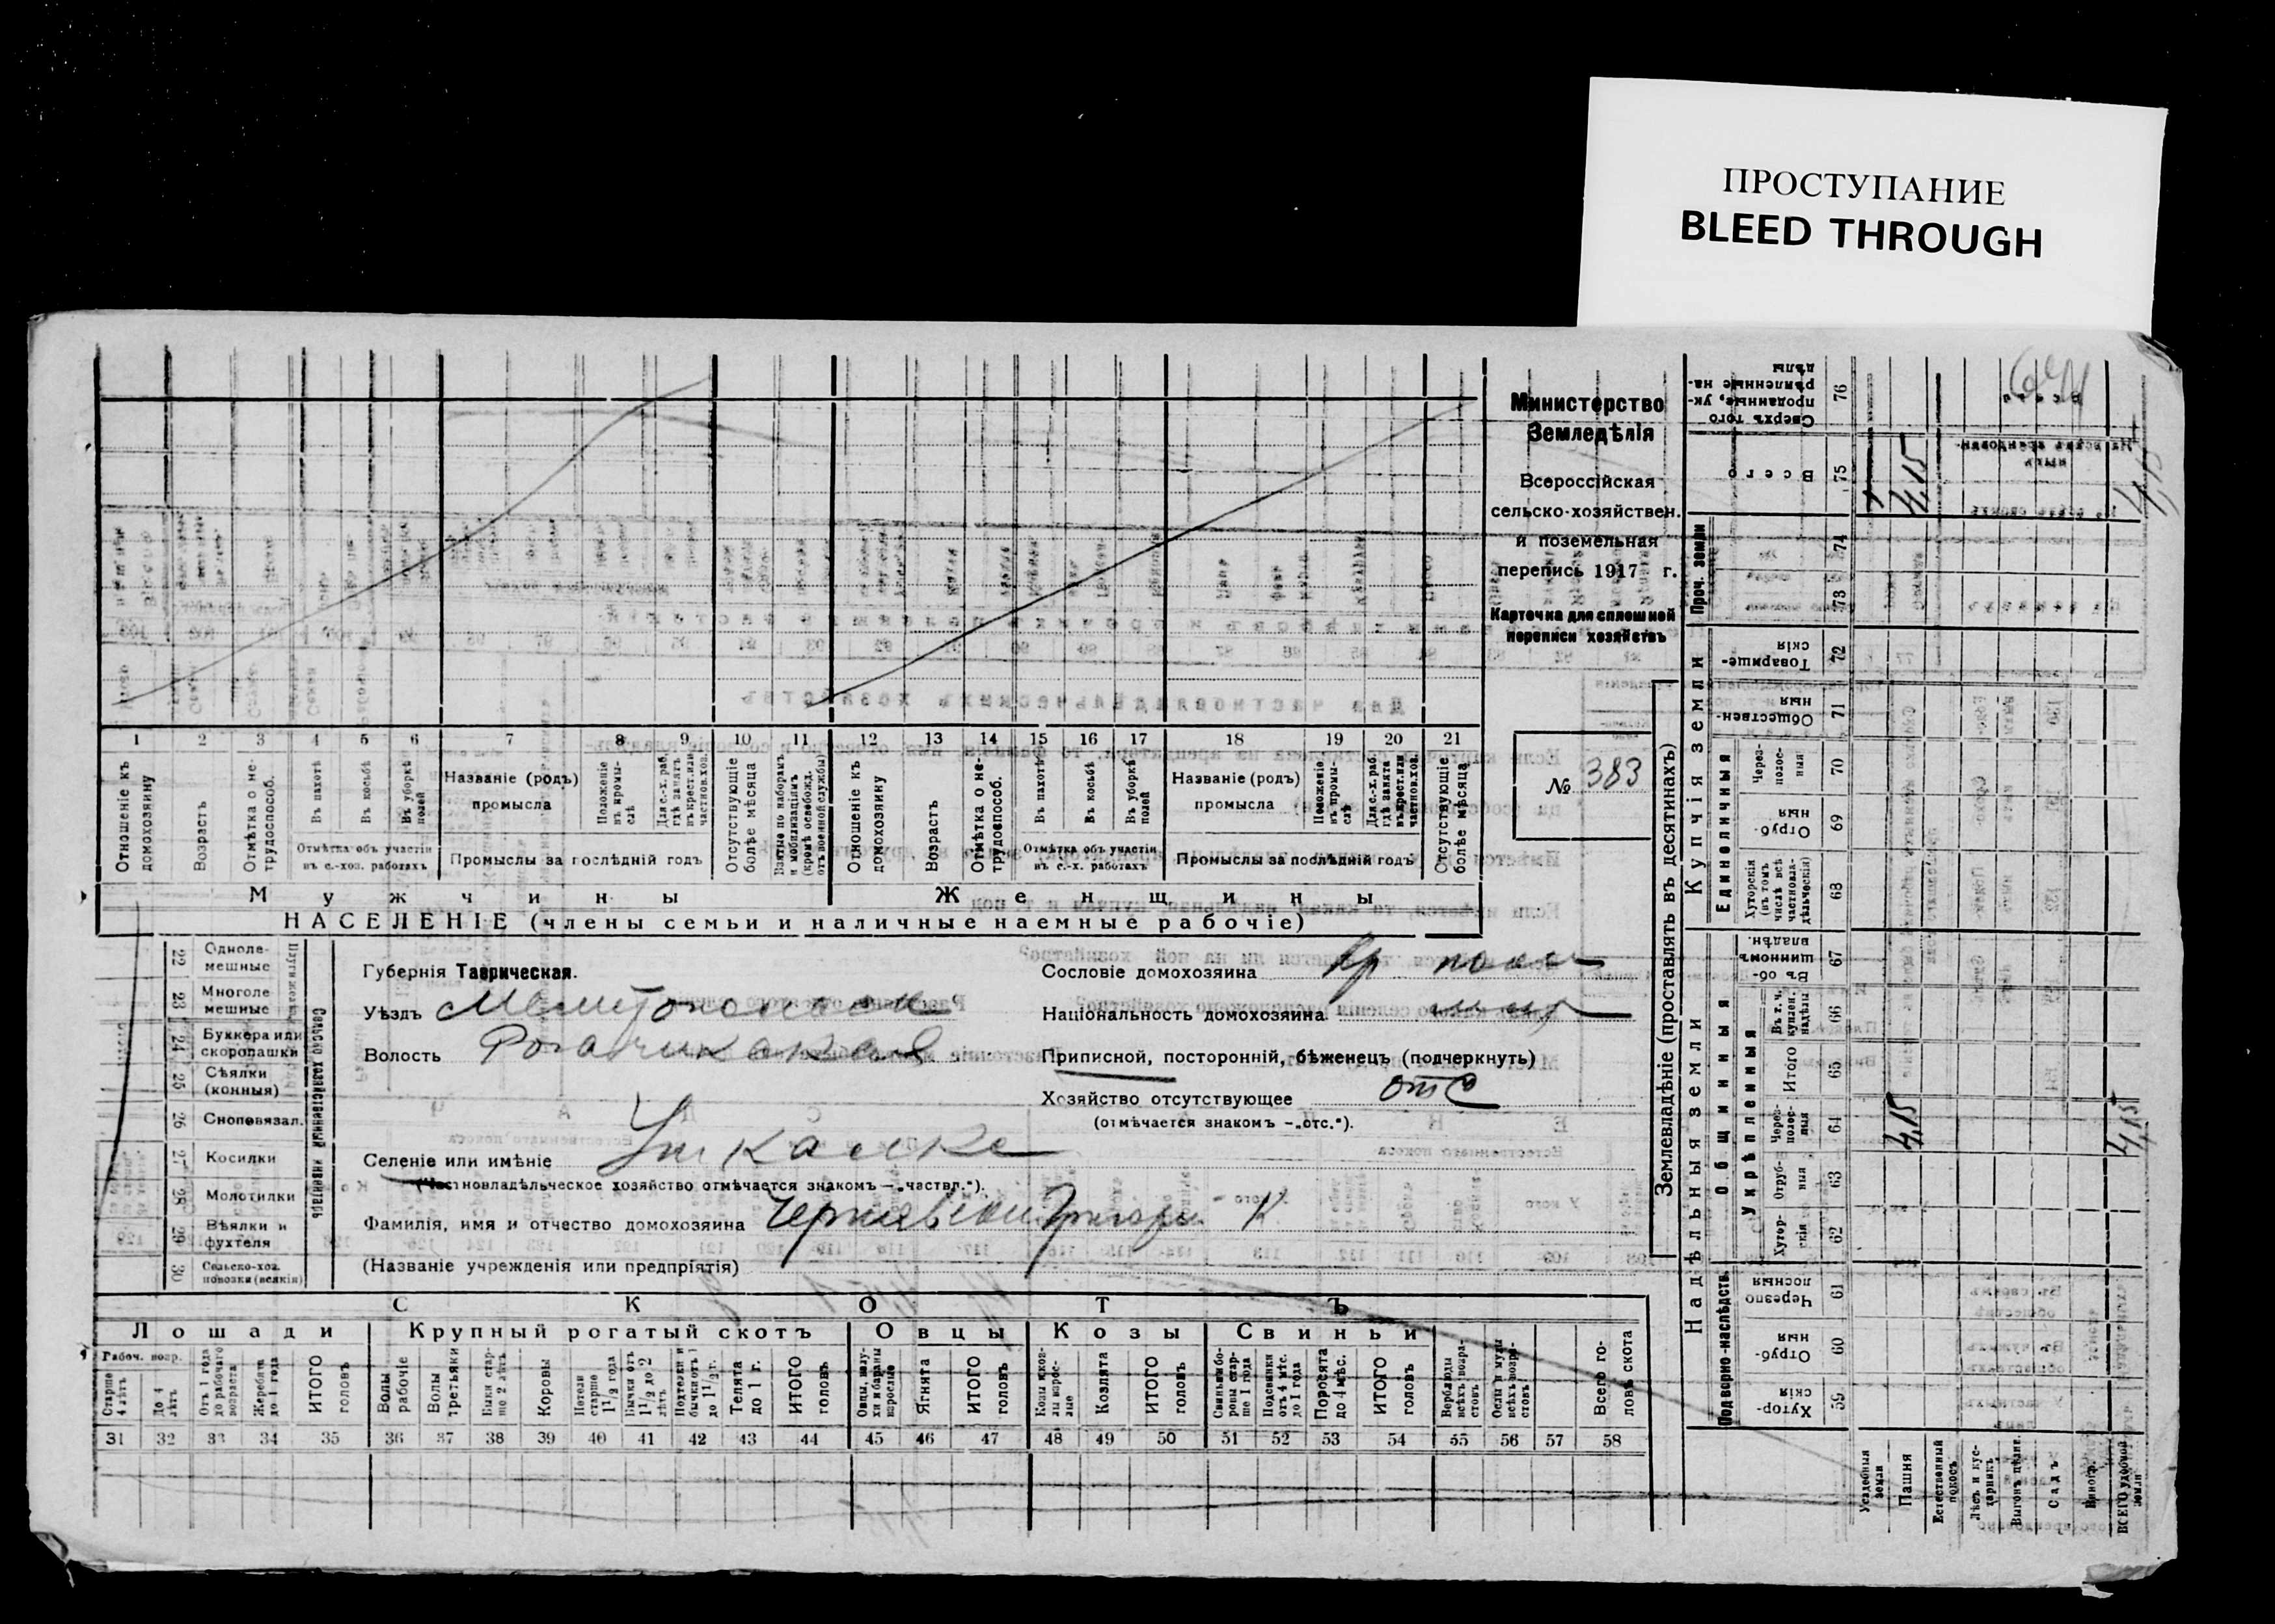 ПРОСТУПАНИЕ
BLEED THROUGH
Министерство
Земледѣлія
Всероссійская
сельско-хозяйствен.
и поземельная
перепись 1917 г.
Карточка для сплошной
переписи хозяйствъ
№ 383
1 2 3 4 5 6 7 8 9 10 11 12 13 14 15 16 17 18 19 20 21
Отношеніе къ домохозяину
Возрастъ
Отмѣтка о не-трудоспособ.
Въ пахотѣ
Въ косьбѣ
Въ уборкѣ полей
Отмѣтка объ участіи
въ с.-хоз. работахъ
Названіе (родъ)
промысла
Положеніе въ промы-слѣ
Для с.-х. раб. гдѣ занятъ въ крест. или частнов. хоз.
Промыслы за послѣдній годъ
Отсутствующіе болѣе мѣсяца
Взятые по наборамъ и мобилизаціямъ (кромѣ освобожд. отъ военной службы)
Отношеніе къ домохозяину
Возрастъ
Отмѣтка о не-трудоспособ.
Въ пахотѣ
Въ косьбѣ
Въ уборкѣ полей
Отмѣтка объ участіи
въ с.-х. работахъ
Названіе (родъ)
промысла
Положеніе въ промы слѣ
Для с.-х. раб. гдѣ занята въ крест. или частнов. хоз.
Промыслы за послѣдній годъ
Отсутствующіе болѣе мѣсяца
Мужчины Женщины
НАСЕЛЕНІЕ (члены семьи и наличные наемные рабочіе)
22 Одноле-мешные
23 Многоле мешные
24 Буккера или скоропашки
25 Сѣялки (конныя)
26 Сноповязал.
27 Косилки
28 Молотилки
29 Вѣялки и фухтеля
30 Сельско-хоз. повозки (всякія)
Сельско хозяйственный инвентарь
Губернія Таврическая.
Уѣздъ Мелитопольск
Волость Рогачикская
Селеніе или имѣніе Ушкалке
(Частновладѣльческое хозяйство отмѣчается знакомъ — „частвл.“).
Фамилія, имя и отчество домохозяина Чернявски Григори К
(Названіе учрежденія или предпріятія)
Сословіе домохозяина кр
Національность домохозяина
Приписной, посторонній, бѣженецъ (подчеркнуть)
Хозяйство отсутствующее отс
(отмѣчается знакомъ — „отс.“).
СКОТЪ
Лошади Крупный рогатый скотъ Овцы Козы Свиньи
Рабоч. возр.
Старше 4 лѣтъ
До 4 лѣтъ
Отъ 1 года до рабочаго возраста
Жеребята до 1 года
ИТОГО головъ
Волы рабочіе
Волы третьяки
Быки стар-ше 2 лѣтъ
Коровы
Нетели старше 1½ года
Бычки отъ 1½ до 2 лѣтъ
Нетелки и бычки отъ 1 до 1½ г.
Телята до 1 г.
ИТОГО головъ
Овцы, валу-хи и бараны взрослые
Ягнята
ИТОГО головъ
Козы и коз-лы взрос-лые
Козлята
ИТОГО головъ
Свиньи и бо-ровы стар-ше 1 года
Подсвинки отъ 4 мѣс. до 1 года
Поросята до 4 мѣс.
ИТОГО головъ
Верблюды всѣхъ возра-стовъ
Ослы и мулы всѣхъ возра-стовъ
Всего го-ловъ скота
31 32 33 34 35 36 37 38 39 40 41 42 43 44 45 46 47 48 49 50 51 52 53 54 55 56 57 58
Землевладѣніе (проставлять въ десятинахъ)
Надѣльныя земли
Купчія земли
Проч. земли
Подворно-наслѣдств.
Общинныя
Укрѣпленныя
Единоличныя
Хутор-скія 59
Отруб-ныя 60
Черезпо лосныя 61
Хутор-скія 62
Отруб-ныя 63
Через-полос-ныя 64
Итого 65
Въ т. ч. куплен. надѣлы 66
Въ об-щинномъ владѣн. 67
Хуторскія (въ томъ числѣ всѣ частновла-дѣльческія) 68
Отруб-ныя 69
Через-полос-ныя 70
Обществен-ныя 71
Товарище-скія 72
73
74
Всего 75
Сверхъ того проданные, ук-рѣпленные на-дѣлы 76
Усадебная земля
Пашня 4,15 4,15
Естественный покосъ
Лѣсъ и кус-тарникъ
Выгонъ цѣлин.
Садъ
Виногр.
ВСЕГО удобной земли 4,15 4,15